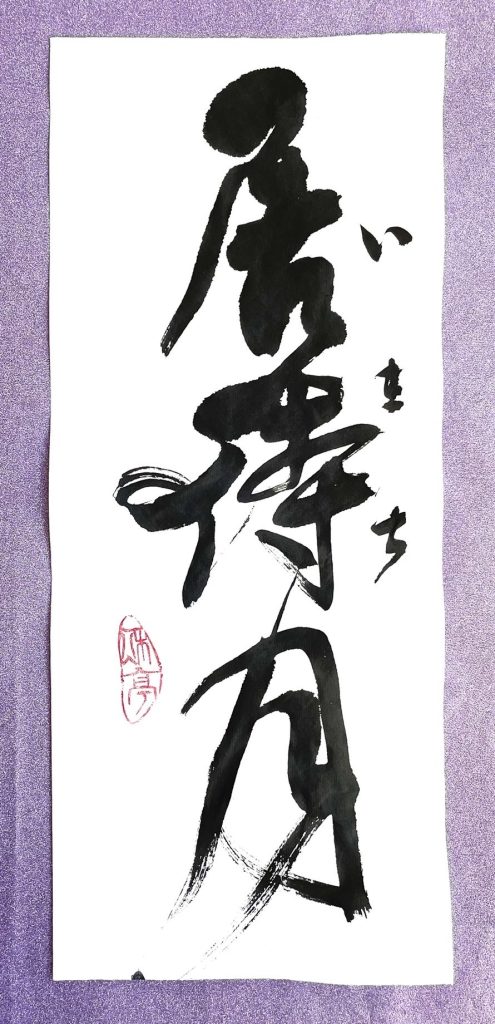 居待月
いまち